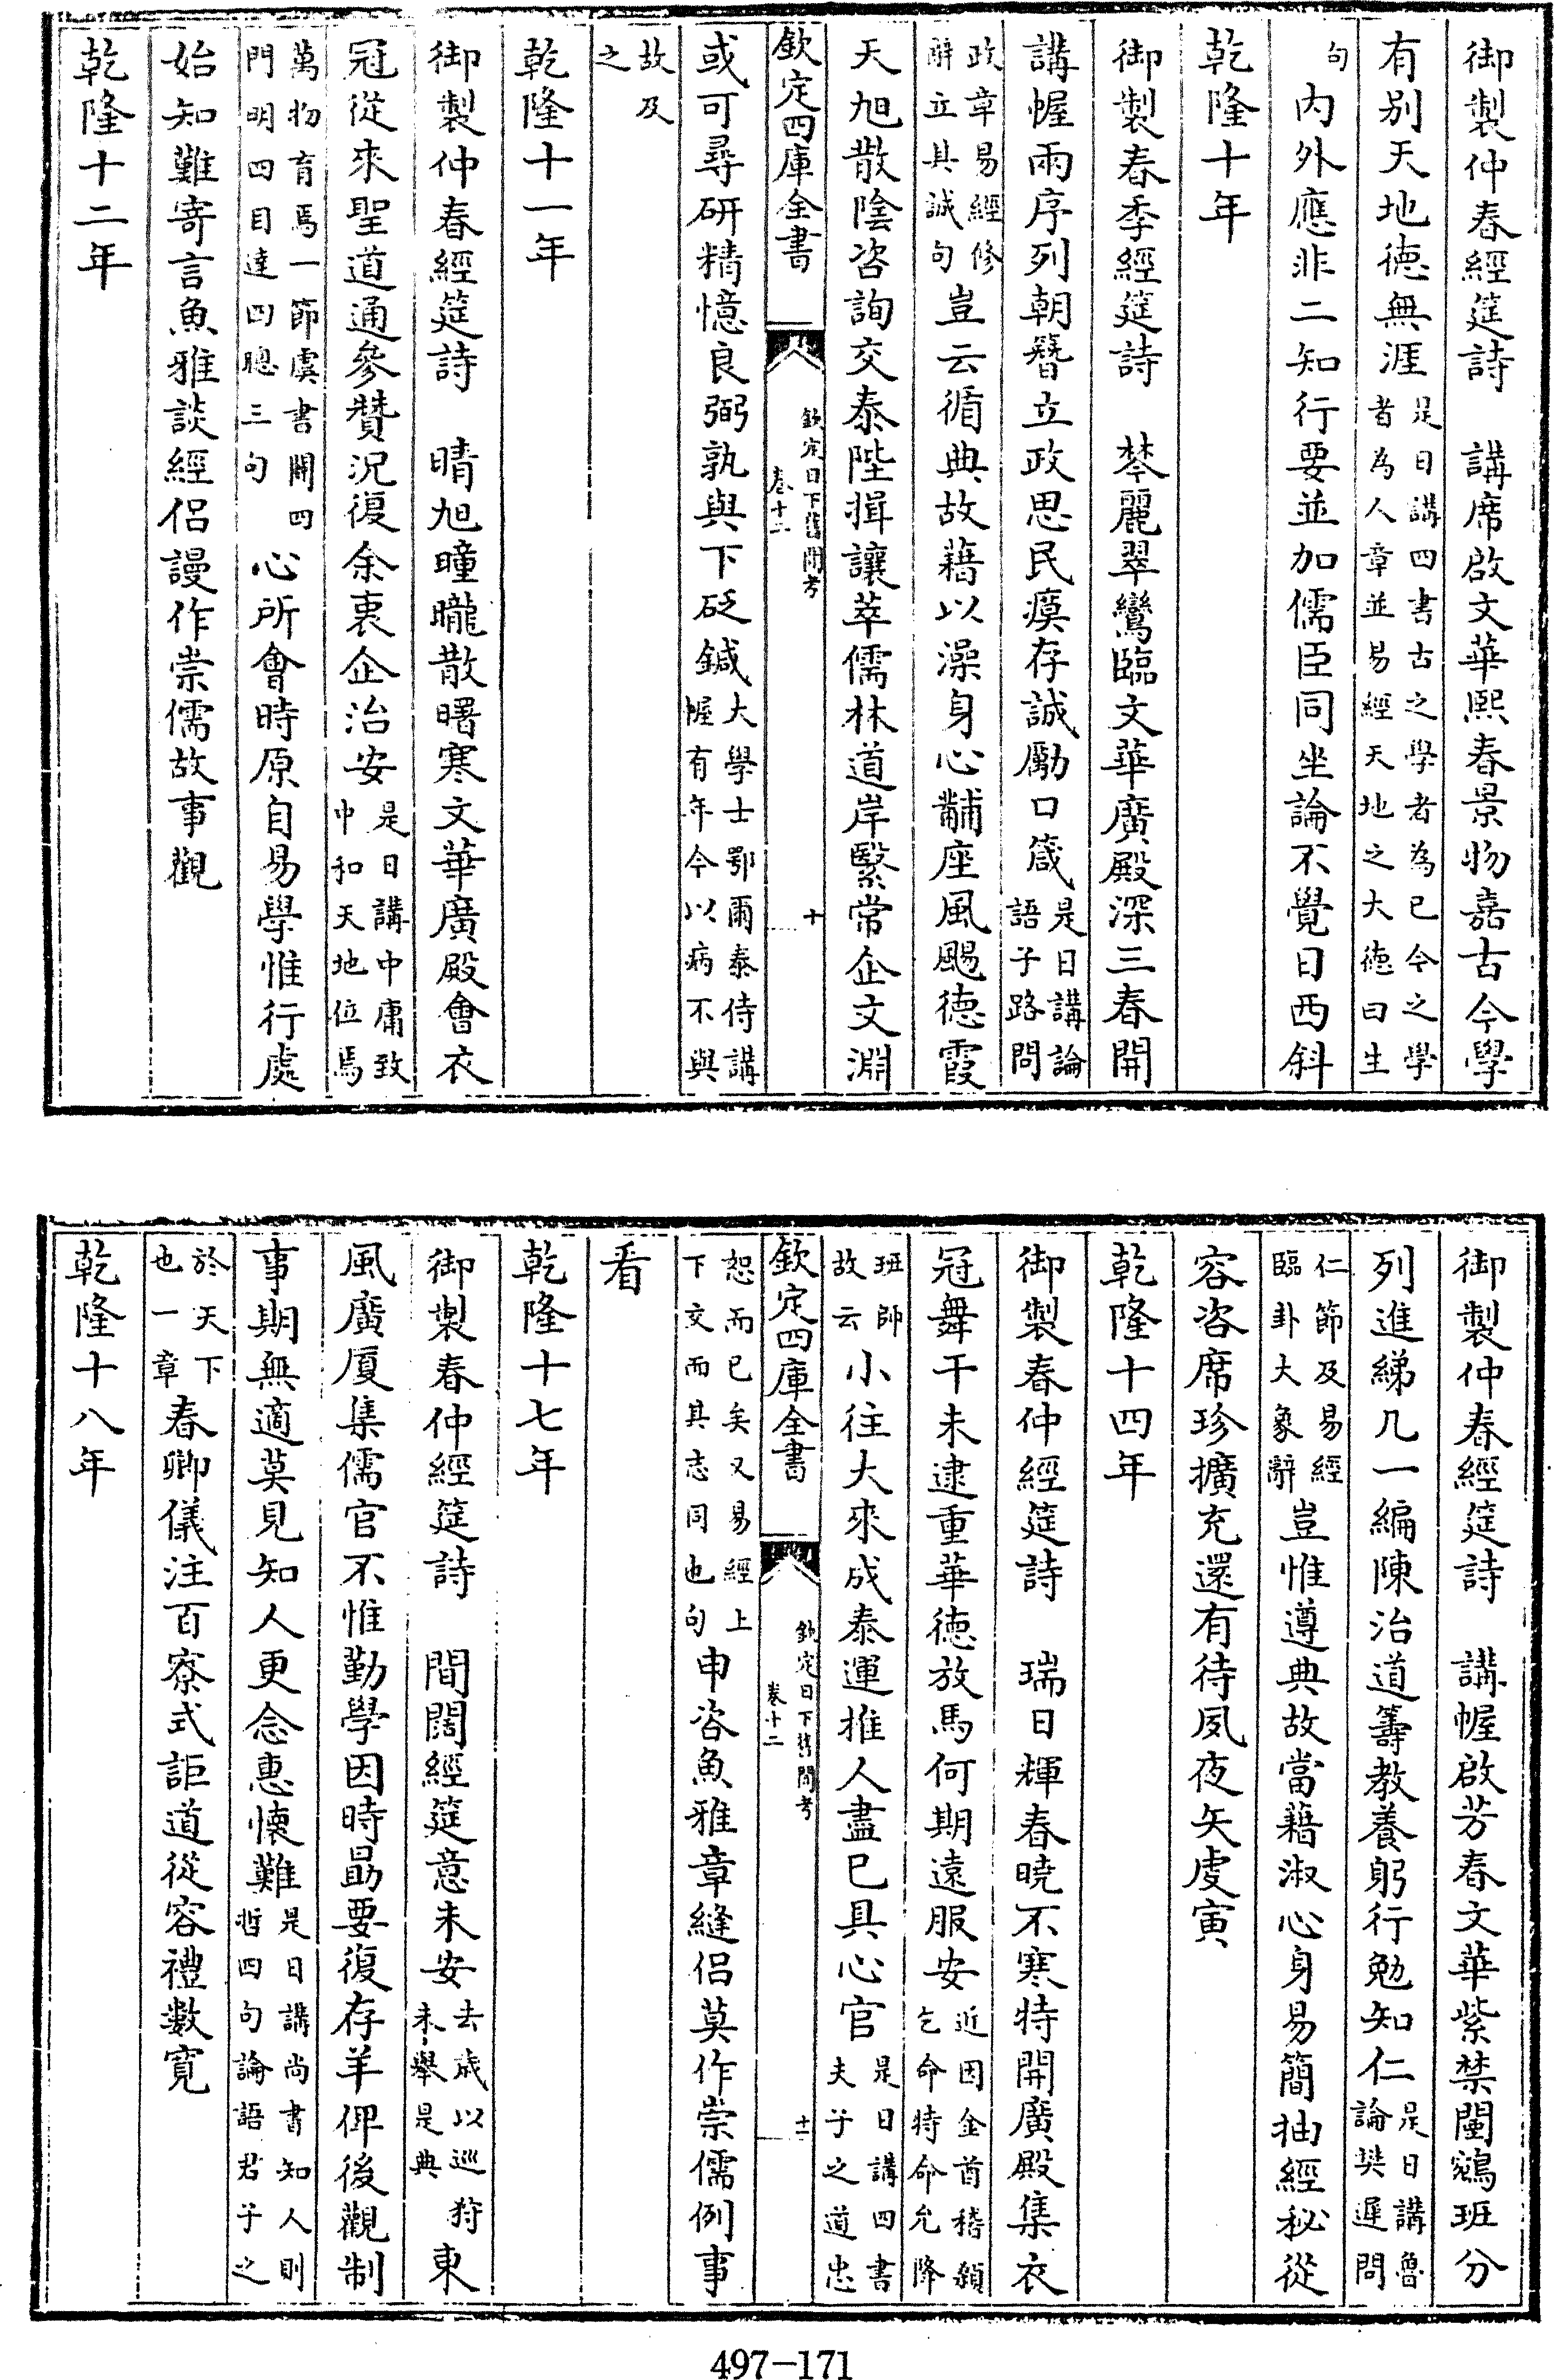 御製仲春經筵詩　講席啟文華熙春景物嘉古今學
有别天地德無涯是日講四書古之學者為己今之學者為人章並易經天地之大德曰生
句内外應非二知行要並加儒臣同坐論不覺日西斜
乾隆十年
御製春季經筵詩　棽麗翠鸞臨文華廣殿深三春開
講幄兩序列朝簪立政思民瘼存誠勵口箴是日講論語子路問
政章易經修辭立其誠句豈云循典故藉以澡身心黼座風颺德霞
天旭散陰咨詢交泰陛揖讓萃儒林道岸繄常企文淵
欽定四庫全書
欽定日下舊聞考
卷十二
十
或可尋研精憶良弼孰與下砭鍼大學士鄂爾泰侍講幄有年今以病不與
故及之
乾隆十一年
御製仲春經筵詩　晴旭曈曨散曙寒文華廣殿會衣
冠從來聖道通參贊況復余衷企治安是日講中庸致中和天地位焉
萬物育焉一節虞書闢四門明四目達四聰三句心所會時原自易學惟行處
始知難寄言魚雅談經侣謾作崇儒故事觀
乾隆十二年
御製仲春經筵詩　講幄啟芳春文華紫禁闉鵷班分
列進綈几一編陳治道籌教養躬行勉知仁是日講魯論樊遲問
仁節及易經臨卦大象辭豈惟遵典故當藉淑心身易簡抽經秘從
容咨席珍擴充還有待夙夜矢虔寅
乾隆十四年
御製春仲經筵詩　瑞日輝春曉不寒特開廣殿集衣
冠舞干未逮重華德放馬何期遠服安近因金酋稽顙乞命特命允降
班師故云小往大來成泰運推人盡己具心官是日講四書夫子之道忠
欽定四庫全書
欽定日下舊聞考
卷十二
十一
恕而已矣又易經上下交而其志同也句申咨魚雅章縫侣莫作崇儒例事
看
乾隆十七年
御製春仲經筵詩　間闊經筵意未安去歲以巡狩未舉是典東
風廣厦集儒官不惟勤學因時勗要復存羊俾後觀制
事期無適莫見知人更念惠懷難是日講尚書知人則哲四句論語君子之
於天下也一章春卿儀注百寮式詎道從容禮數寛
乾隆十八年
497-171